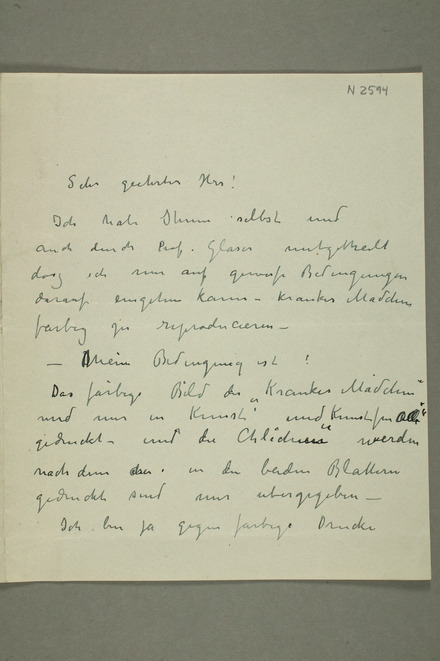 N 2594
Sehr geehrter Herr!
Ich habe Ihnen selbst und
auch durch Prof. Glaser mitgetheilt
dasz ich nur auf gewisse Bedingungen
darauf eingehen kann – Krankes Mädchen
farbig zu reproducieren –
– Meine Bedingung ist !
Das färbige Bild des „Krankes Mädchen"
wird nur in Kunst und Kunst
gedruckt – und die werden
nach dem in den beiden Blattern
gedruckt sind mir übergegeben –
Ich bin ja gegen farbige Drucke